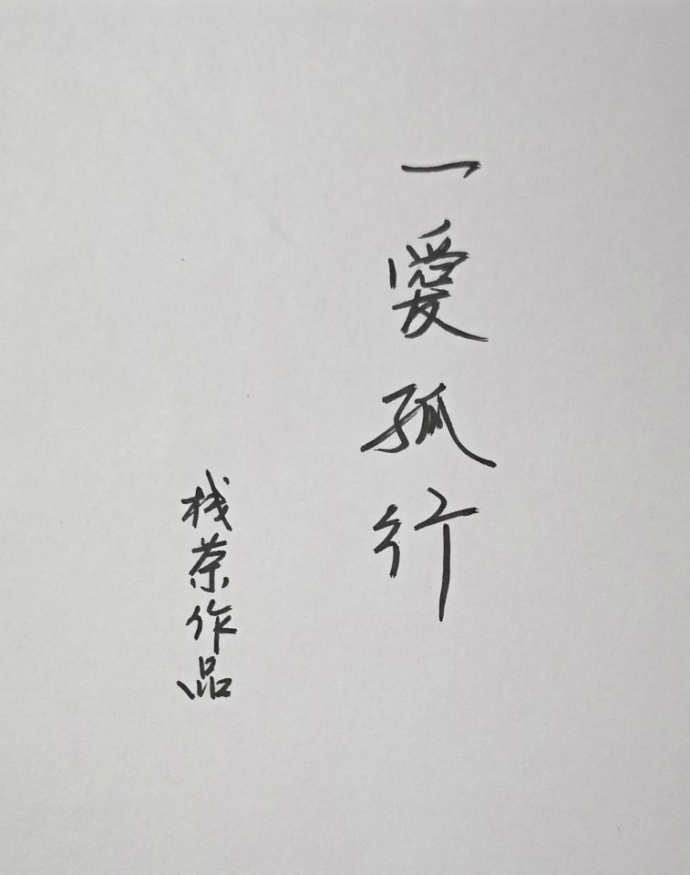 一愛孤行
栈荼作品